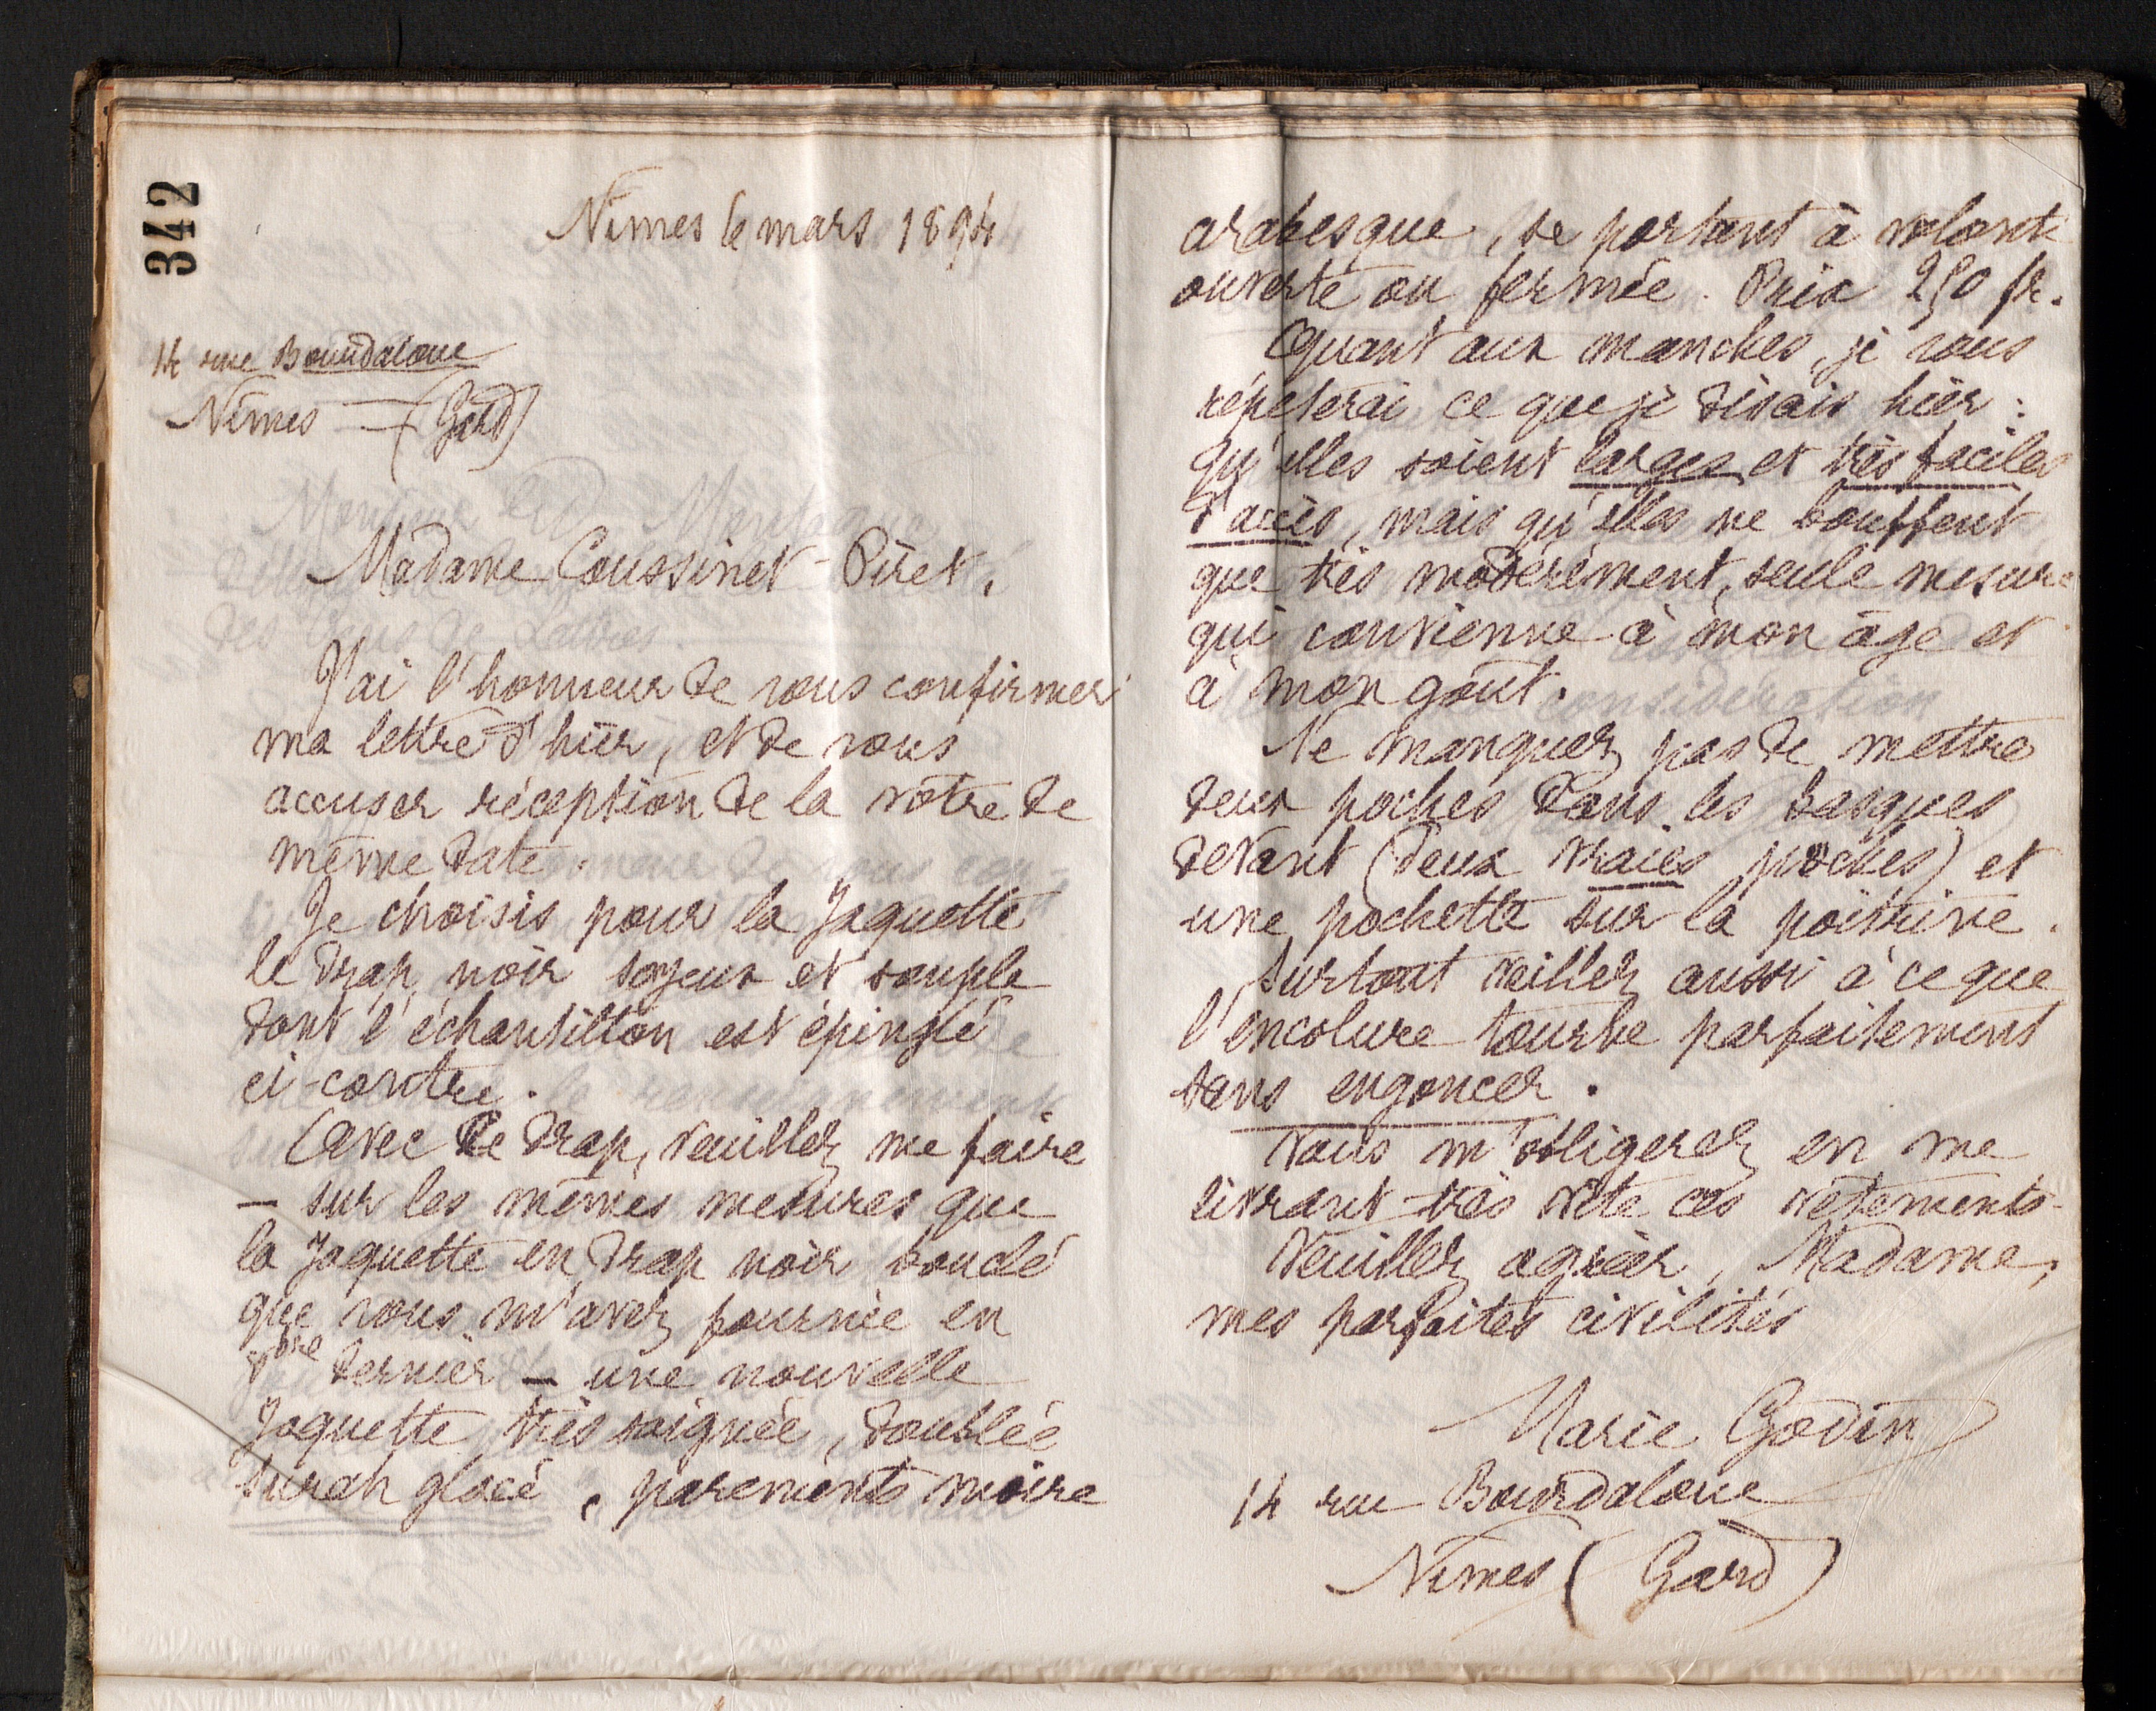 342
Nîmes le mars 1894
14 rue Bourdaloue
Nîmes - (Gard)
Madame Coussinet-Piret,
J'ai l'honneur de vous confirmer
ma lettre d'hier, et de vous
accuser réception de la vôtre de
même date.
Je choisis pour la Jaquette
le drap noir soyeux et souple
dont l'échantillon est épinglé
ci-contre.
Avec ce drap, veuillez me faire
— sur les mêmes mesures que
la Jaquette en drap noir bouclé
que vous m'avez fournie en
bre dernier — une nouvelle
Jaquette très soignée, doublée
surah glacé, parements moire
arabesque, se portant à volonté
ouverte ou fermée. Prix 250 fr.
Quant aux manches, je vous
répèterai ce que je disais hier :
qu'elles soient larges et très faciles
d'accès, mais qu'elles ne bouffent
que très modérément, seule mesure
qui convienne à mon âge et
à mon goût.
Ne manquez pas de mettre
deux poches dans les basques
devant (deux vraies poches) et
une pochette sur la poitrine.
Surtout veillez aussi à ce que
l'encolure tourne parfaitement
sans engoncer.
Vous m'obligerez en me
livrant très vite ces vêtements.
Veuillez agréer, Madame,
mes parfaites civilités
Marie Godin
14 rue Bourdaloue
Nîmes (Gard)